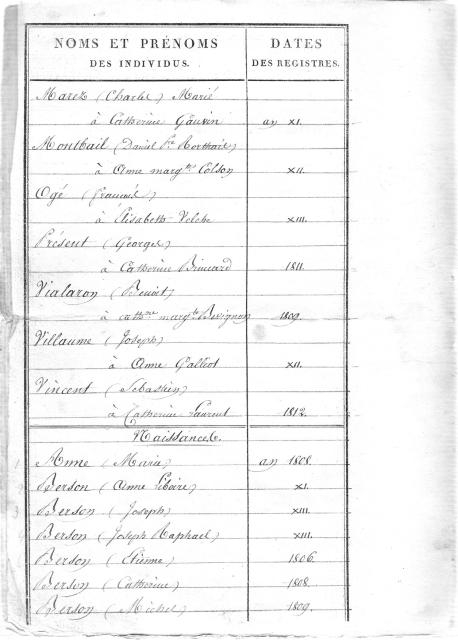 NOMS ET PRÉNOMS
DES INDIVIDUS.
DATES
DES REGISTRES.
Marez (Charles) Marié
à Catherine Gauvin an XI.
Montbail (Daniel Pre
à Anne margte Colson XII.
Ogé (François)
à Élisabeth Velche XIII.
Présent (Georges)
à Catherine 1811.
Vialaron (Benoit)
à cathne margte 1809.
Villaume (Joseph)
à Anne Galliot XII.
Vincent (Sébastien)
à Catherine Laurent 1812.
Naissances.
Anne (Marie) an 1808.
Berson (Anne Liboire) XI.
Berson (Joseph) XIII.
Berson (Joseph Raphael) XIII.
Berson (Etienne) 1806.
Berson (Catherine) 1808.
Berson (Michel) 1809.